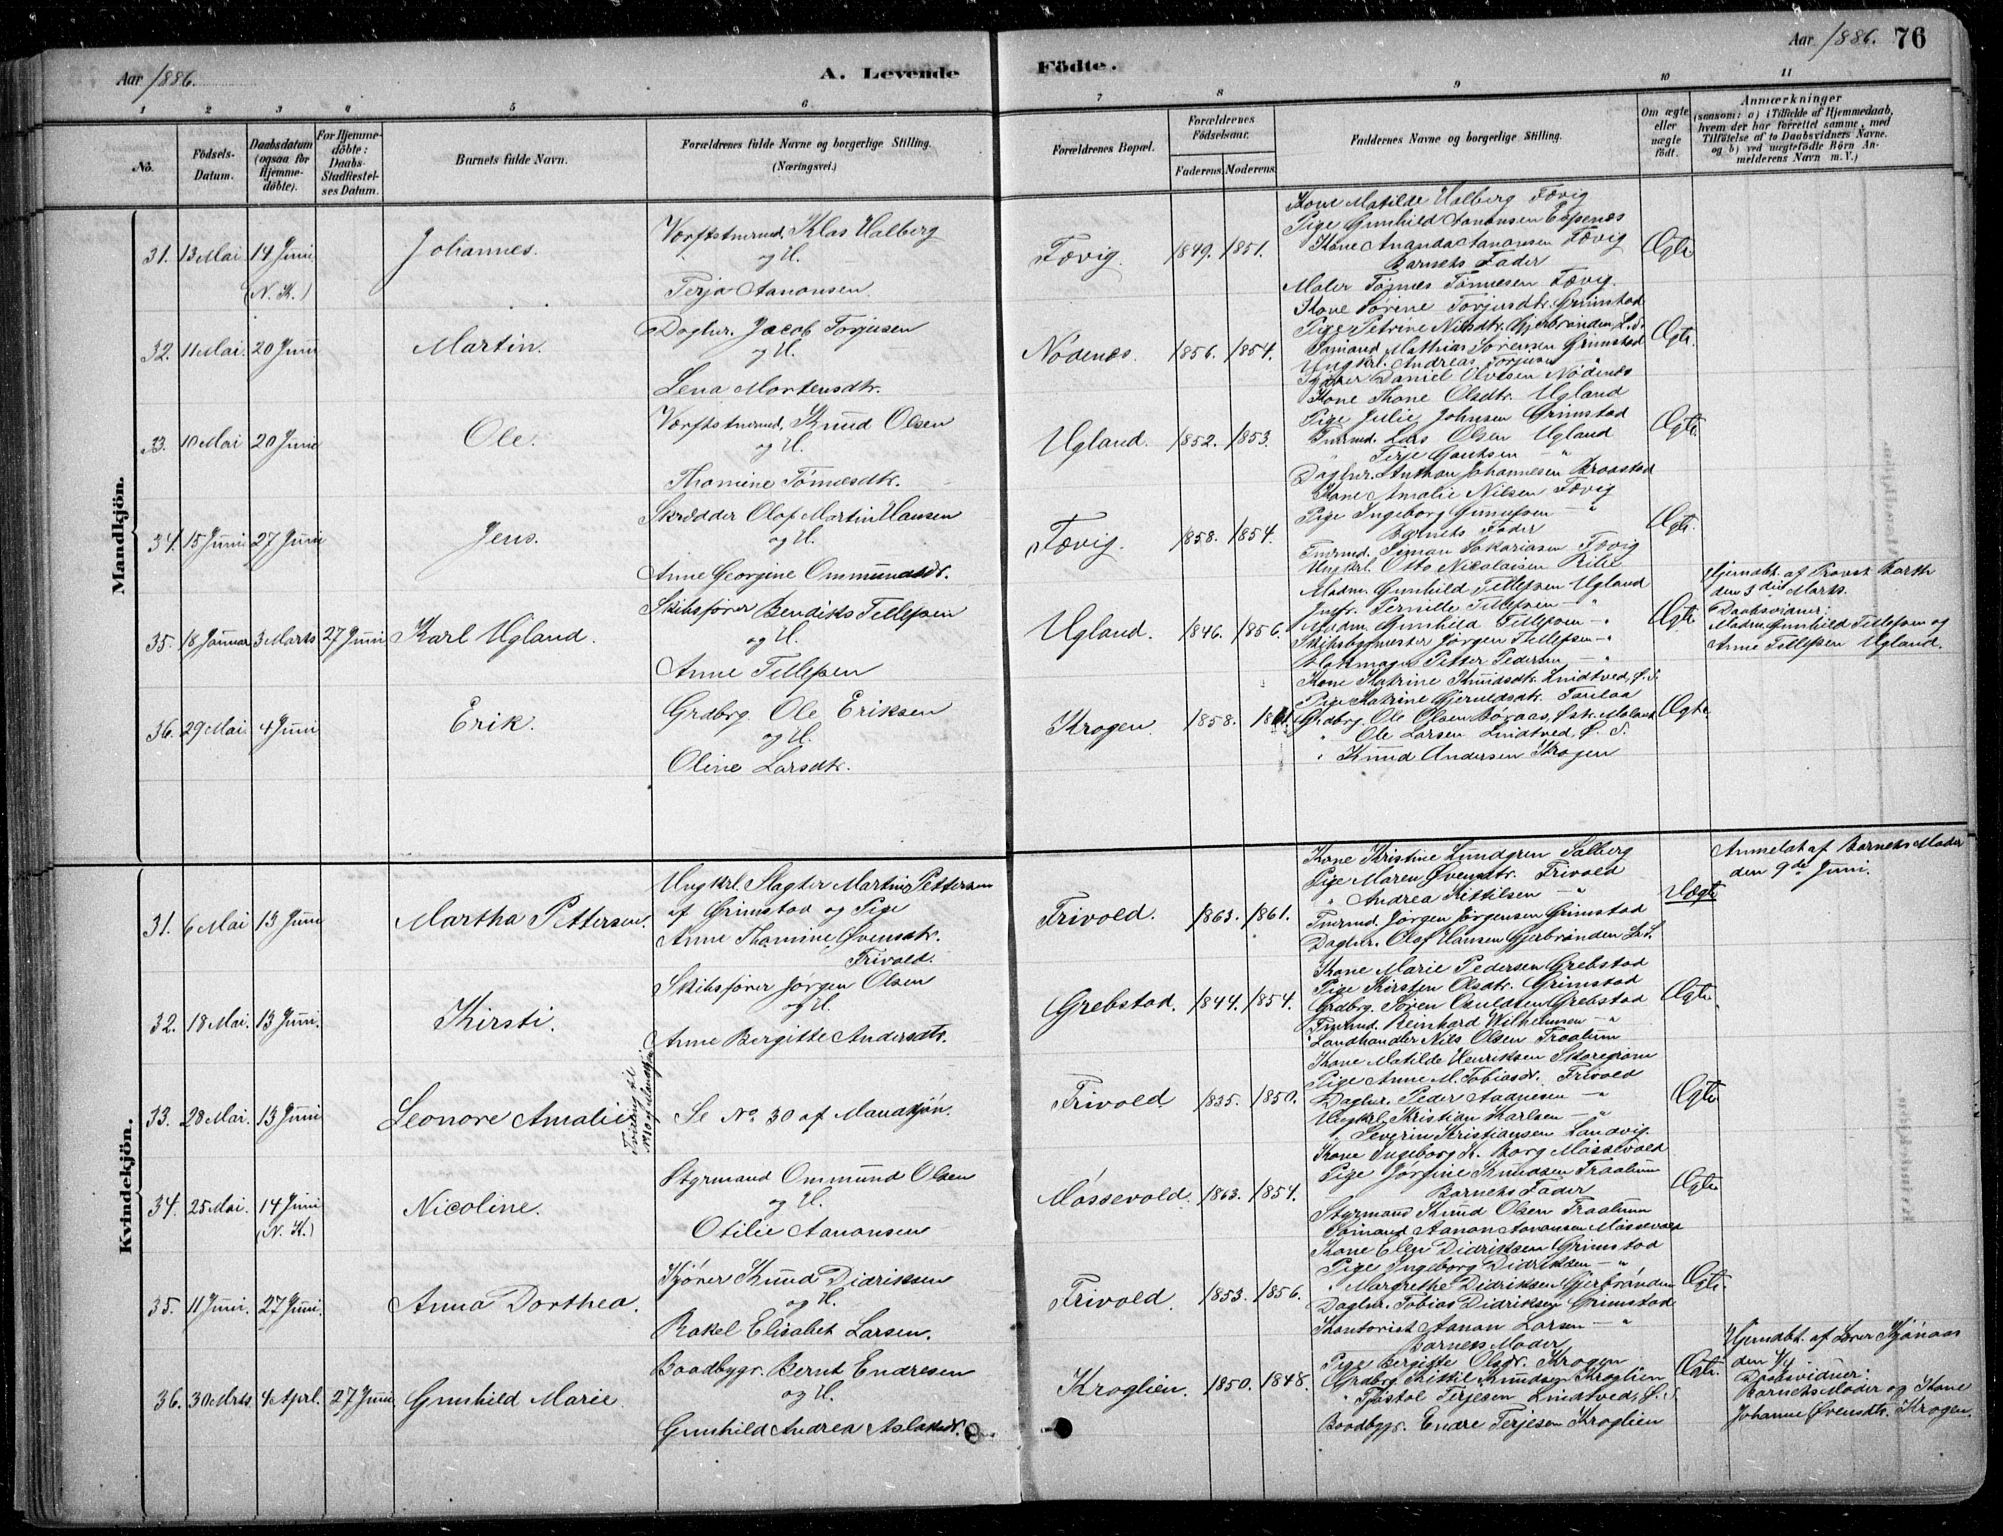 Aar 1886.
A. Levende
Födte.
Aar 1886. 76
1 2 3 4 5 6 7 8 9 10 11
No.
Födsels-
Datum.
Daabsdatum
(ogsaa for
Hjemme-
döbte).
For Hjemme-
döbte:
Daabs-
Stadfæstel-
ses Datum.
Barnets fulde Navn.
Forældrenes fulde Navne og borgerlige Stilling.
(Næringsvei.)
Forældrenes Bopæl.
Forældrenes
Födselsaar.
Faderens. Moderens.
Faddernes Navne og borgerlige Stilling.
Om ægte
eller
uægte
födt.
Anmærkninger
(saasom: a) i Tilfælde af Hjemmedaab,
hvem der har forrettet samme, med
Tilföielse af to Daabsvidners Navne.
og b) ved uægtefödte Börn An-
melderens Navn m. V.)
Mandkjön.
31. 13 Mai 14 Juni (N. K.) Johannes.
Værftstmrmd. Klas Halberg
og H.
Terja Aanonsen
Fævig. 1849. 1851.
Kone Matilde Halberg Fævig
Pige Gunhild Aanonsen Espenæs
Kone Ananda Aanonsen Fævig
Barnets Fader
Maler Tönnes Tönnesen Fævig.
Ægte
32. 11 Mai. 20 Juni Martin.
Daglur. Jacob Torjusen
og H.
Lena Mortensdtr.
Nödenæs. 1856. 1854.
Kone Sörine Torjusdtr. Grimstad
Pige Petrine Nilsdtr. Gjerbrönden, L. S.
Sömand Mathias Sörensen Grimstad
Ungkrl. Andreas Torjusen — "
Daniel Olsen Nödenæs
Ægte.
33. 10 Mai 20 Juni Ole.
Værftstmrmd. Knud Olsen
og H.
Thomine Tönnesdtr.
Ugland. 1852. 1853.
Kone Thone Olsdtr. Ugland
Pige Julie Johnsen Grimstad
Tmrmd. Lars Olsen Ugland
" Terje Gautsen — "
Daglur. Anthon Johannesen Braastad
Ægte
34. 15 Juni 27 Juni Jens.
Skrædder Olaf Martin Hansen
og H.
Anne Georgine Ommundsdtr.
Fævig. 1858. 1854.
Kone Amalie Nilsen Fævig
Pige Ingeborg Gunufsen — "
Barnets Fader
Tmrmd. Simon Sakariasen Fævig
Ungkrl. Otto Nicolaisen Rilie
Ægte
35. 18 Januar 3 Marts 27 Juni Karl Ugland.
Skibsförer Bendiks Tellefsen
og H.
Anne Tellefsen
Ugland. 1846. 1856.
Madm. Gunhild Tellefsen Ugland
Jngfr. Pernille Tellefsen — "
Madm. Gunhild Tellefsen — "
Skibsbygmester Jörgen Tellefsen — "
Petter Pedersen — "
Ægte
Hjemdbt. af Provst Barth
den 3die Marts.
Daabsvidner:
Madm. Gunhild Tellefsen og
Anne Tellefsen Ugland.
36. 29 Mai 4 Juni Erik.
Grdbrg. Ole Eriksen
og H.
Oline Larsdtr.
Krogen. 1858. 1861.
Kone Katrine Knudsdtr. Lindtved, Ø. S.
Pige Katrine Gjeruldsdtr.
Grdbrg. Ole Olsen Böraas, Østr. Moland
" Ole Larsen Lindtved, Ø. S.
" Knud Andersen Krogen
Ægte
Kvindekjön.
31. 6 Mai 13 Juni Martha Pettersen.
Ungkrl. Slagter Martin Pettersen
af Grimstad og Pige
Anne Thomine Øvensdtr.
Frivold.
Frivold. 1863. 1861.
Kone Kristine Lundgren Solberg
Pige Maren Øvensdtr. Frivold
" Andrea Kittilsen — "
Tmrmd. Jörgen Jörgensen Grimstad
Daglur. Olaf Hansen Gjerbrönden L. S.
Uægte
Anmeldt af Barnets Moder
den 9de Juni.
32. 18 Mai. 13 Juni. Kirsti.
Skibsförer Jörgen Olsen
og H.
Anne Bergitte Andersdtr.
Grebstad. 1844. 1854.
Kone Marie Pedersen Grebstad
Pige Kirsten Olsdtr. Grimstad
Grdbrg. Sören Osuldsen Grebstad
Tmrmd. Reinhard Wilhelmsen — "
Landhandler Nils Olsen Fraalum
Ægte
33. 28 Mai. 13 Juni Leonore Amalie
Tvilling til
No 30 af Mandkjön
Se No. 30 af Mandkjön.
Frivold 1835. 1850.
Kone Matilde Henriksen Skoregrøm
Pige Anne M. Tobiasdtr. Frivold
Daglur. Peder Aadnesen — "
Ungkrl. Kristian Karlsen — "
" Severin Kristiansen Landvig.
Ægte
34. 25 Mai. 14 Juni (N. K.) Nicoline.
Styrmand Ommund Olsen
og H.
Otilie Aanonsen
Mössevold. 1863. 1854.
Kone Ingeborg K. Borg Mössevold
Pige Jörgine Knudsen Fraalum
Barnets Fader
Styrmand Knud Olsen Fraalum
Sömand Aanon Aanonsen Mössevold
Ægte
35. 11 Juni. 27 Juni. Anna Dorthea.
Kjörer Knud Didriksen
og H.
Rakel Elisabet Larsen.
Frivold 1853. 1856.
Kone Elen Didriksen Grimstad
Pige Ingeborg Didriksen — "
" Margrethe Didriksen Gjerbrönden
Daglur. Tobias Didriksen Grimstad
Kontorist Aanon Larsen — "
Ægte.
36. 30 Mrts. 4 Aprl. 27 Juni Gunhild Marie
Baadbygr. Bernt Endresen
og H.
Gunhild Andrea Aslaksdtr.
Kroglien. 1850. 1848.
Barnets Moder
Pige Bergitte Olsdtr. Krogen
Grdbrg. Kittil Knudsen Kroglien
" Tjöstol Terjesen Lindtved, Ø. S.
Baadbygr. Endre Terjesen Kroglien
Ægte.
Hjemdbt. af Lærer Kjönaas
den 4/4
Daabsvidner:
Barnets Moder og Kone
Johanne Øvensdtr. Krogen.